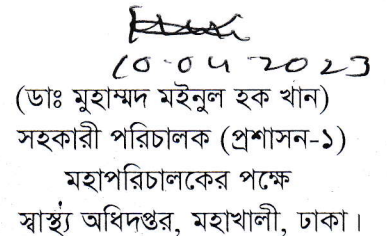 10-04-2023
(ডাঃ মুহাম্মদ মইনুল হক খান)
সহকারী পরিচালক (প্রশাসন-১)
মহাপরিচালকের পক্ষে
স্বাস্থ্য অধিদপ্তর, মহাখালী, ঢাকা।